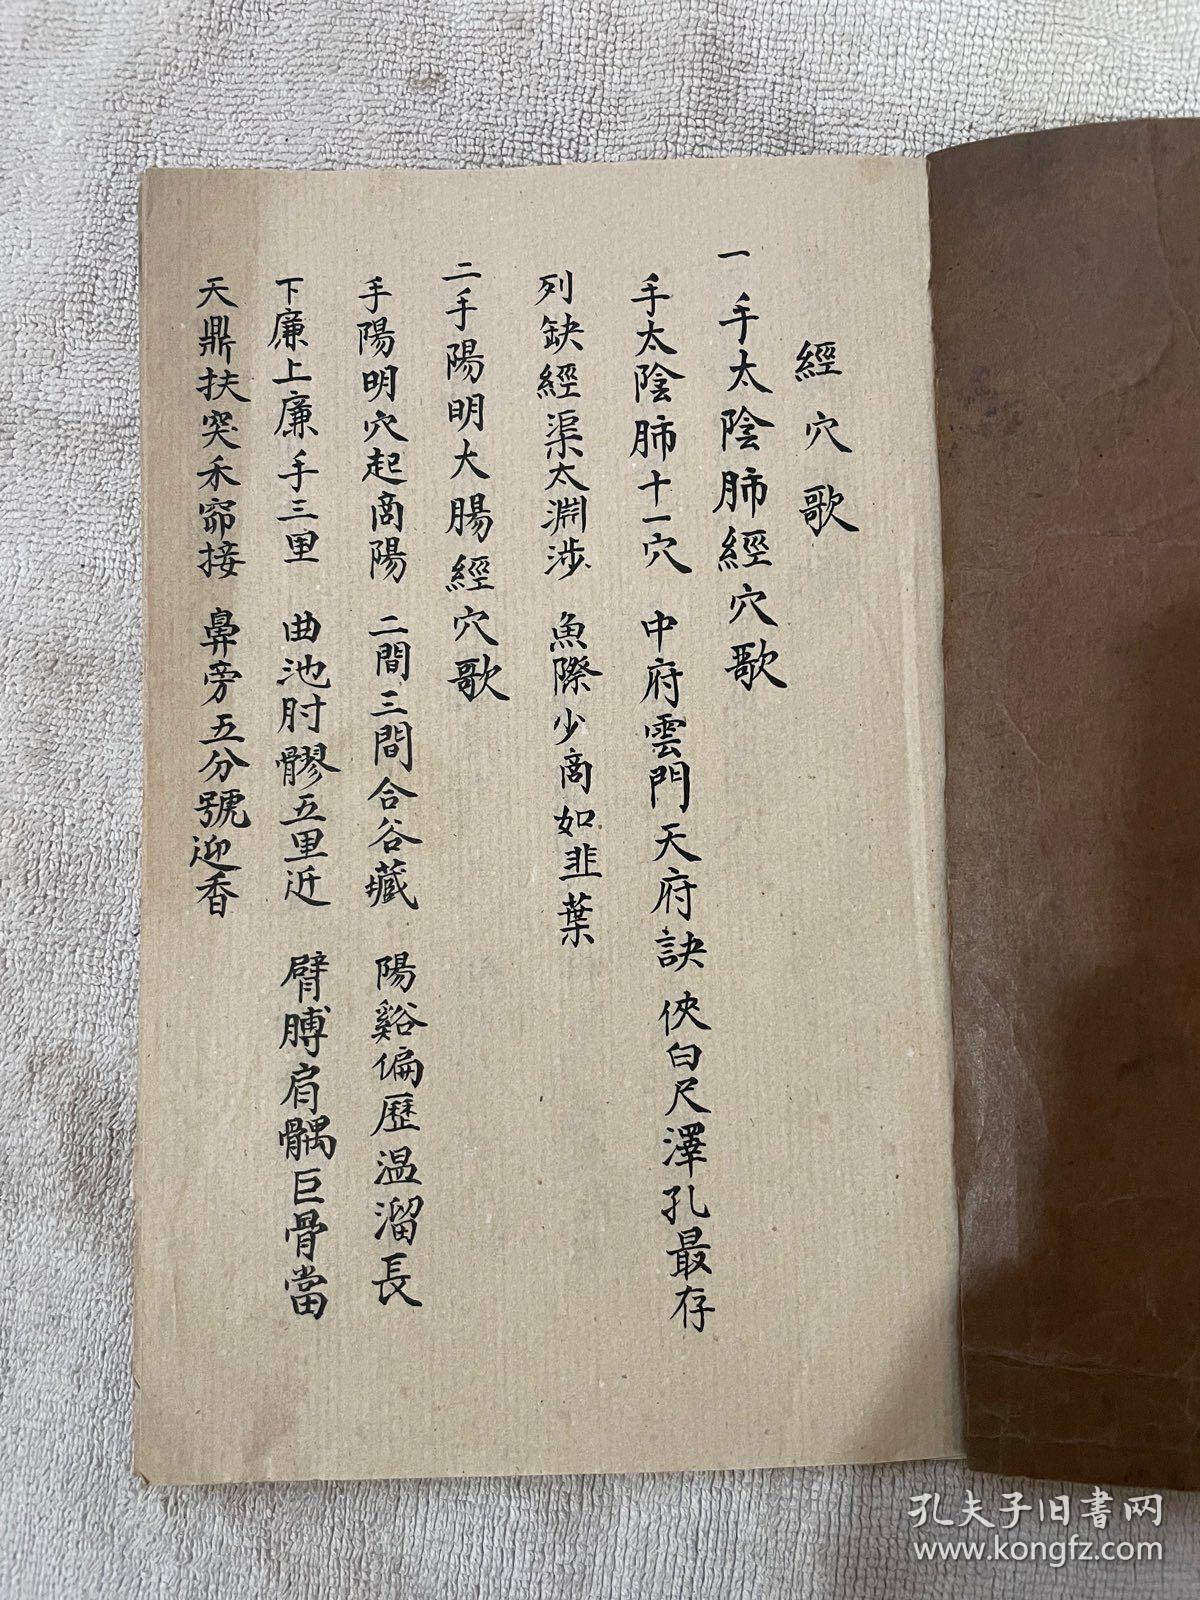 經穴歌
一手太陰肺經穴歌
手太陰肺十一穴 中府雲門天府訣 俠白尺澤孔最存
列缺經渠太淵涉 魚際少商如韭葉
二手陽明大腸經穴歌
手陽明穴起商陽 二間三間合谷藏 陽谿偏歷温溜長
下廉上廉手三里 曲池肘髎五里近 臂膊肩髃巨骨當
天鼎扶突禾窌接 鼻旁五分號迎香
孔夫子旧书网
www.kongfz.com